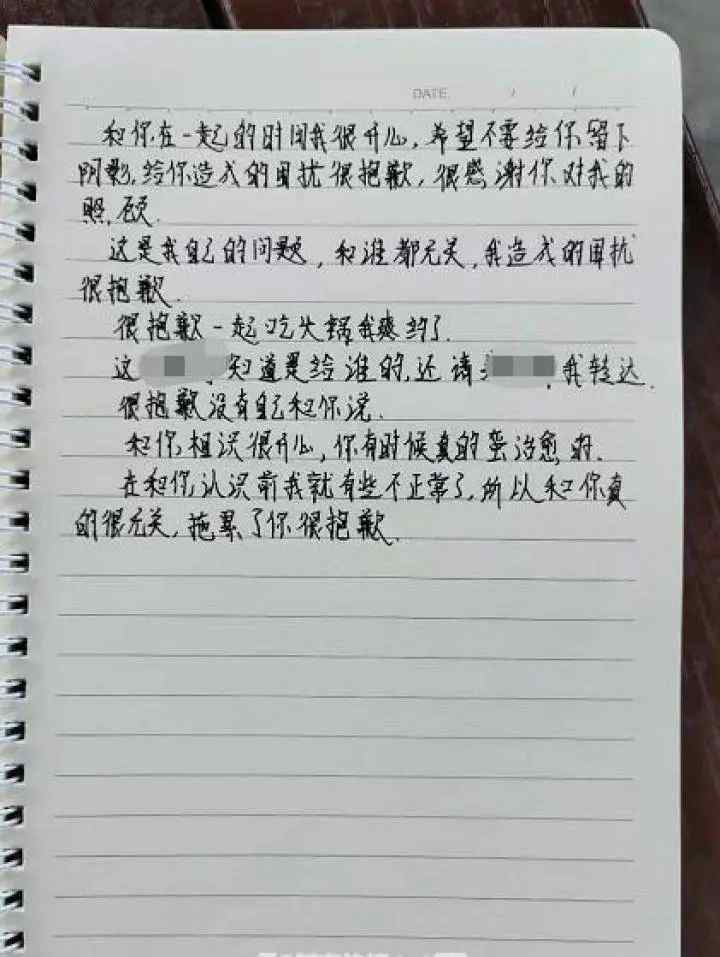 DATE / /
和你在一起的时间我很开心，希望不要给你留下
阴影，给你造成的困扰很抱歉，很感谢你对我的
照顾.
这是我自己的问题，和谁都无关，我造成的困扰
很抱歉.
很抱歉一起吃火锅我爽约了.
这 知道是给谁的，还请 ，我转达.
很抱歉没有自己和你说.
和你相识很开心，你有时候真的蛮治愈的.
在和你认识前我就有些不正常了，所以和你真
的很无关，拖累了你很抱歉.